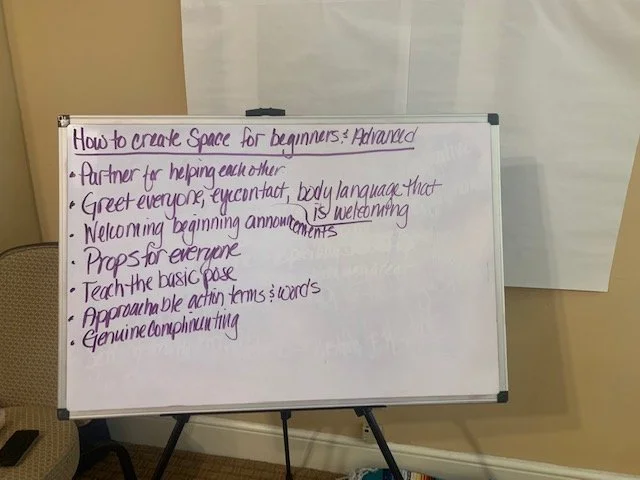 How to create Space for beginners & Advanced
• Partner for helping each other
• Greet everyone, eyecontact, body language that
is welcoming
• Welcoming beginning announcements
• Props for everyone
• Teach the basic pose
• Approachable action terms & words
• Genuine complimenting